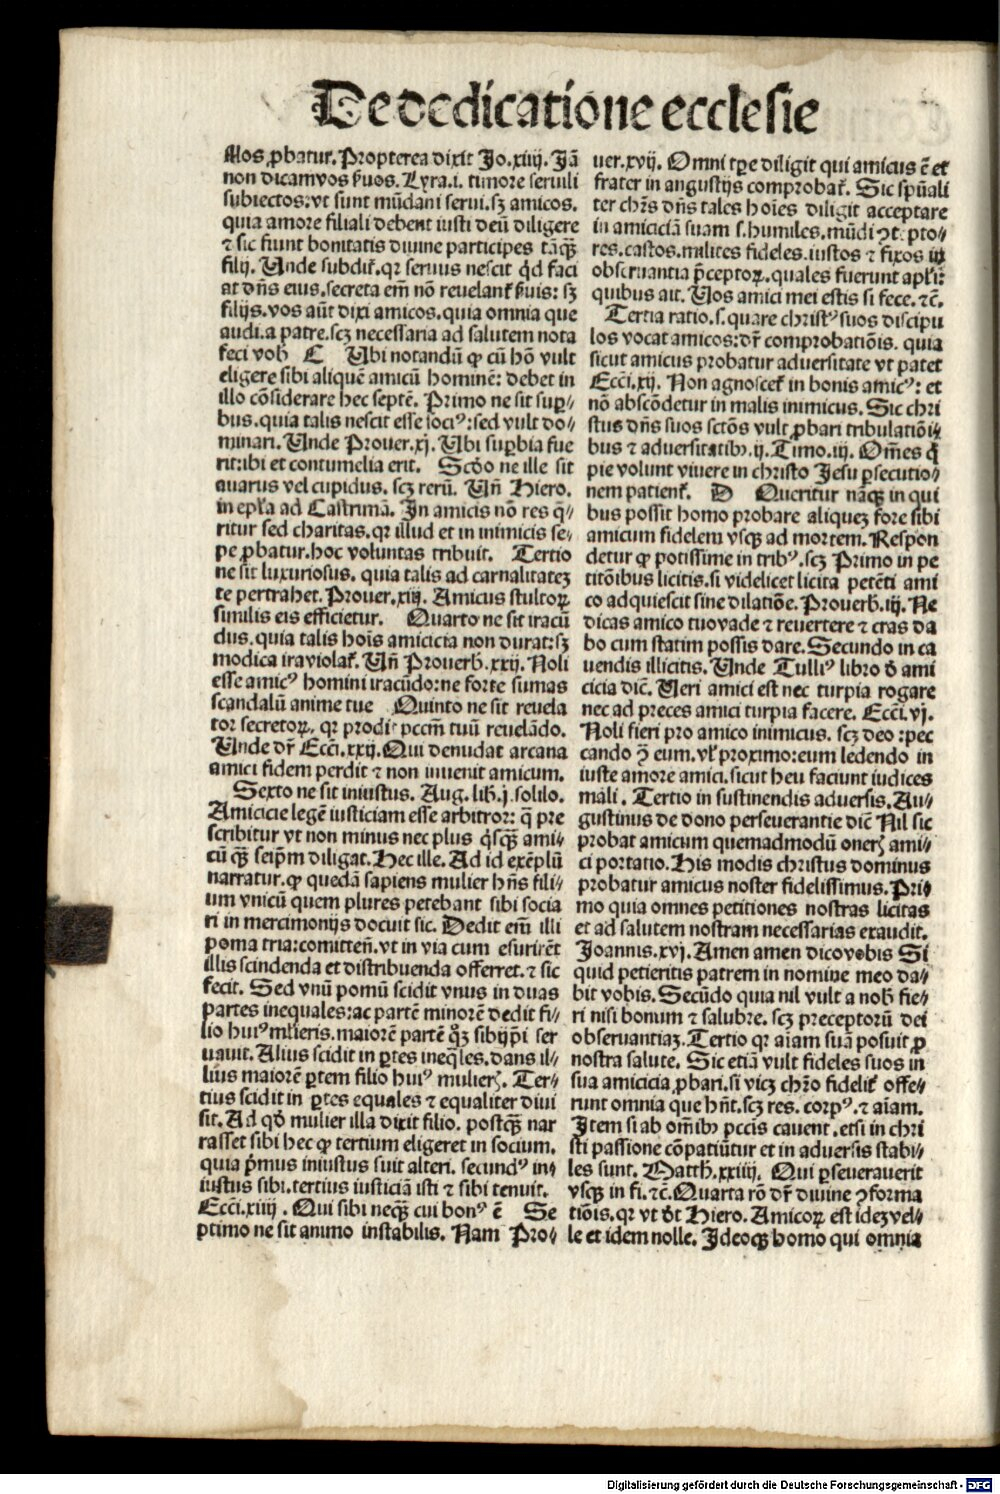 De dedicatione ecclesie
Mos ꝓbatur. Propterea dixit Jo.xiiij. Jã
non dicam vos ẜuos. Lyra.i. timore seruili
subiectos: vt sunt mũdani serui. sꝫ amicos.
quia amore filiali debent iusti deũ diligere
⁊ sic fiunt bonitatis diuine participes tãqꝫ̃
filij. Unde subdit̃. qꝛ seruus nescit q̇d faci
at dñs eius. secreta em̃ nõ reuelant̃ ẜuis: sꝫ
filijs. vos aũt dixi amicos. quia omnia que
audi. a patre. scꝫ necessaria ad salutem nota
feci vob C Ubi notandũ ꝙ cũ hõ vult
eligere sibi aliquẽ amicũ hominẽ: debet in
illo cõsiderare hec septẽ. Primo ne sit suꝑ⸗
bus. quia talis nescit esse sociꝰ: sed vult do⸗
minari. Unde Prouer.xj. Ubi suꝑbia fue
rit: ibi et contumelia erit. Scďo ne ille sit
auarus vel cupidus. scꝫ rerũ. Uñ Hiero.
in epl̃a ad Castrinã. In amicis nõ res q̃⸗
ritur sed charitas. qꝛ illud et in inimicis se⸗
pe ꝓbatur. hoc voluntas tribuit. Tertio
ne sit luxuriosus. quia talis ad carnalitateꝫ
te pertrahet. Prouer.xiij. Amicus stultoꝝ
similis eis efficietur. Quarto ne sit iracũ
dus. quia talis hoĩs amicicia non durat: sꝫ
modica ira violat̃. Uñ Prouerb̃.xxij. Noli
esse amicꝰ homini iracũdo: ne forte sumas
scandalũ anime tue Quinto ne sit reuela
tor secretoꝝ, qꝛ prodit pccm̃ tuũ reuelãdo.
Unde dr̃ Ecci.xxij. Qui denudat arcana
amici fidem perdit ⁊ non inuenit amicum.
Sexto ne sit iniustus. Aug. lib̃.j.solilo.
Amicicie legẽ iusticiam esse arbitror: q̃ pre
scribitur vt non minus nec plus q̇sqꝫ̃ ami⸗
cũ qꝫ̃ seip̃m diligat. Hec ille. Ad id exẽplũ
narratur. ꝙ quedã sapiens mulier hñs fili⸗
um vnicũ quem plures petebant sibi socia
ri in mercimonijs docuit sic. Dedit em̃ illi
poma tria: comitten̄. vt in via cum esurirẽt
illis scindenda et distribuenda offerret. ⁊ sic
fecit. Sed vnũ pomũ scidit vnus in duas
partes inequales: ac partẽ minorẽ dedit fi⸗
lio huiꝰ ml̃ieris. maiorẽ partẽ q̊ꝫ sibijp̃i ser
uauit. Alius scidit in ꝑtes ineq̃les. dans il⸗
lius maiorẽ ꝑtem filio huiꝰ mulieꝝ. Ter⸗
tius scidit in ꝑtes equales ⁊ equaliter diui
sit. Ad qď mulier illa dixit filio. postqꝫ̃ nar
rasset sibi hec ꝙ tertium eligeret in socium.
quia p̃mus iniustus fuit alteri. secundꝰ in⸗
iustus sibi. tertius iusticiã isti ⁊ sibi tenuit.
Ecci.xiiij. Qui sibi neqꝫ̃ cui bonꝰ ẽ Se
ptimo ne sit animo instabilis. Nam Pro⸗
uer.xvij. Omni tꝑe diligit qui amicus ẽ et
frater in angustijs comprobat̃. Sic spũali
ter chr̃s dñs tales hoĩes diligit acceptare
in amiciciã suam s. humiles. mũdi ⁊t. pto⸗
res. castos. milites fideles. iustos ⁊ fixos in
obseruantia p̃ceptoꝝ. quales fuerunt apl̃i:
quibus ait. Uos amici mei estis si fece. ⁊c̃.
Tertia ratio. s. quare christꝰ suos discipu
los vocat amicos: dr̃ comprobatiõis. quia
sicut amicus probatur aduersitate vt patet
Ecci.xij. Non agnoscet̃ in bonis amicꝰ: et
nõ abscõdetur in malis inimicus. Sic chri
stus dñs suos sctõs vult ꝓbari tribulatiõi⸗
bus ⁊ aduersitatibꝫ. ij. Timo.iij. Om̃es q̇
pie volunt viuere in christo Jesu ꝑsecutio⸗
nem patient̃. D Queritur nãqꝫ in qui
bus possit homo probare aliqueꝫ fore sibi
amicum fidelem vsqꝫ ad mortem. Respon
detur ꝙ potissime in tribꝰ. scꝫ Primo in pe
titõibus licitis. si videlicet licita petẽti ami
co adquiescit sine dilatiõe. Prouerb̃.iij. Ne
dicas amico tuo vade ⁊ reuertere ⁊ cras da
bo cum statim possis dare. Secundo in ca
uendis illicitis. Unde Tulliꝰ libro ď ami
cicia dic̃. Ueri amici est nec turpia rogare
nec ad preces amici turpia facere. Ecci.vj.
Noli fieri pro amico inimicus. scꝫ deo: pec
cando ꝯ̃ eum. vl̃ proximo: eum ledendo in
iuste amore amici. sicut heu faciunt iudices
mali. Tertio in sustinendis aduersis. Au⸗
gustinus de dono perseuerantie dic̃ Nil sic
probat amicum quemadmodũ oneꝝ ami⸗
ci portatio. His modis christus dominus
probatur amicus noster fidelissimus. Pri⸗
mo quia omnes petitiones nostras licitas
et ad salutem nostram necessarias exaudit.
Joannis.xvj. Amen amen dico vobis Si
quid petieritis patrem in nomine meo da⸗
bit vobis. Secũdo quia nil vult a nob̃ fie⸗
ri nisi bonum ⁊ salubre. scꝫ preceptorũ dei
obseruantiaꝫ. Tertio qꝛ aĩam suã posuit ꝓ
nostra salute. Sic etiã vult fideles suos in
sua amicicia ꝓbari. si vicꝫ chr̃o fidelit̃ offe⸗
runt omnia que hñt. scꝫ res. corpꝰ. ⁊ aĩam.
Item si ab om̃ibꝫ pccis cauent. etsi in chri
sti passione cõpatiũtur et in aduersis stabi⸗
les sunt. Matth̃.xxiiij. Qui ꝑseuerauerit
vsqꝫ in fi. ⁊c̃. Quarta rõ dr̃ diuine ꝯforma
tiõis. qꝛ vt ďt Hiero. Amicoꝝ est ideꝫ vel⸗
le et idem nolle. Ideoqꝫ homo qui omnia
Digitalisierung gefördert durch die Deutsche Forschungsgemeinschaft - DFG